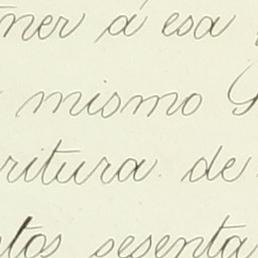 ner á esa
mismo
ritura de
tos sesenta